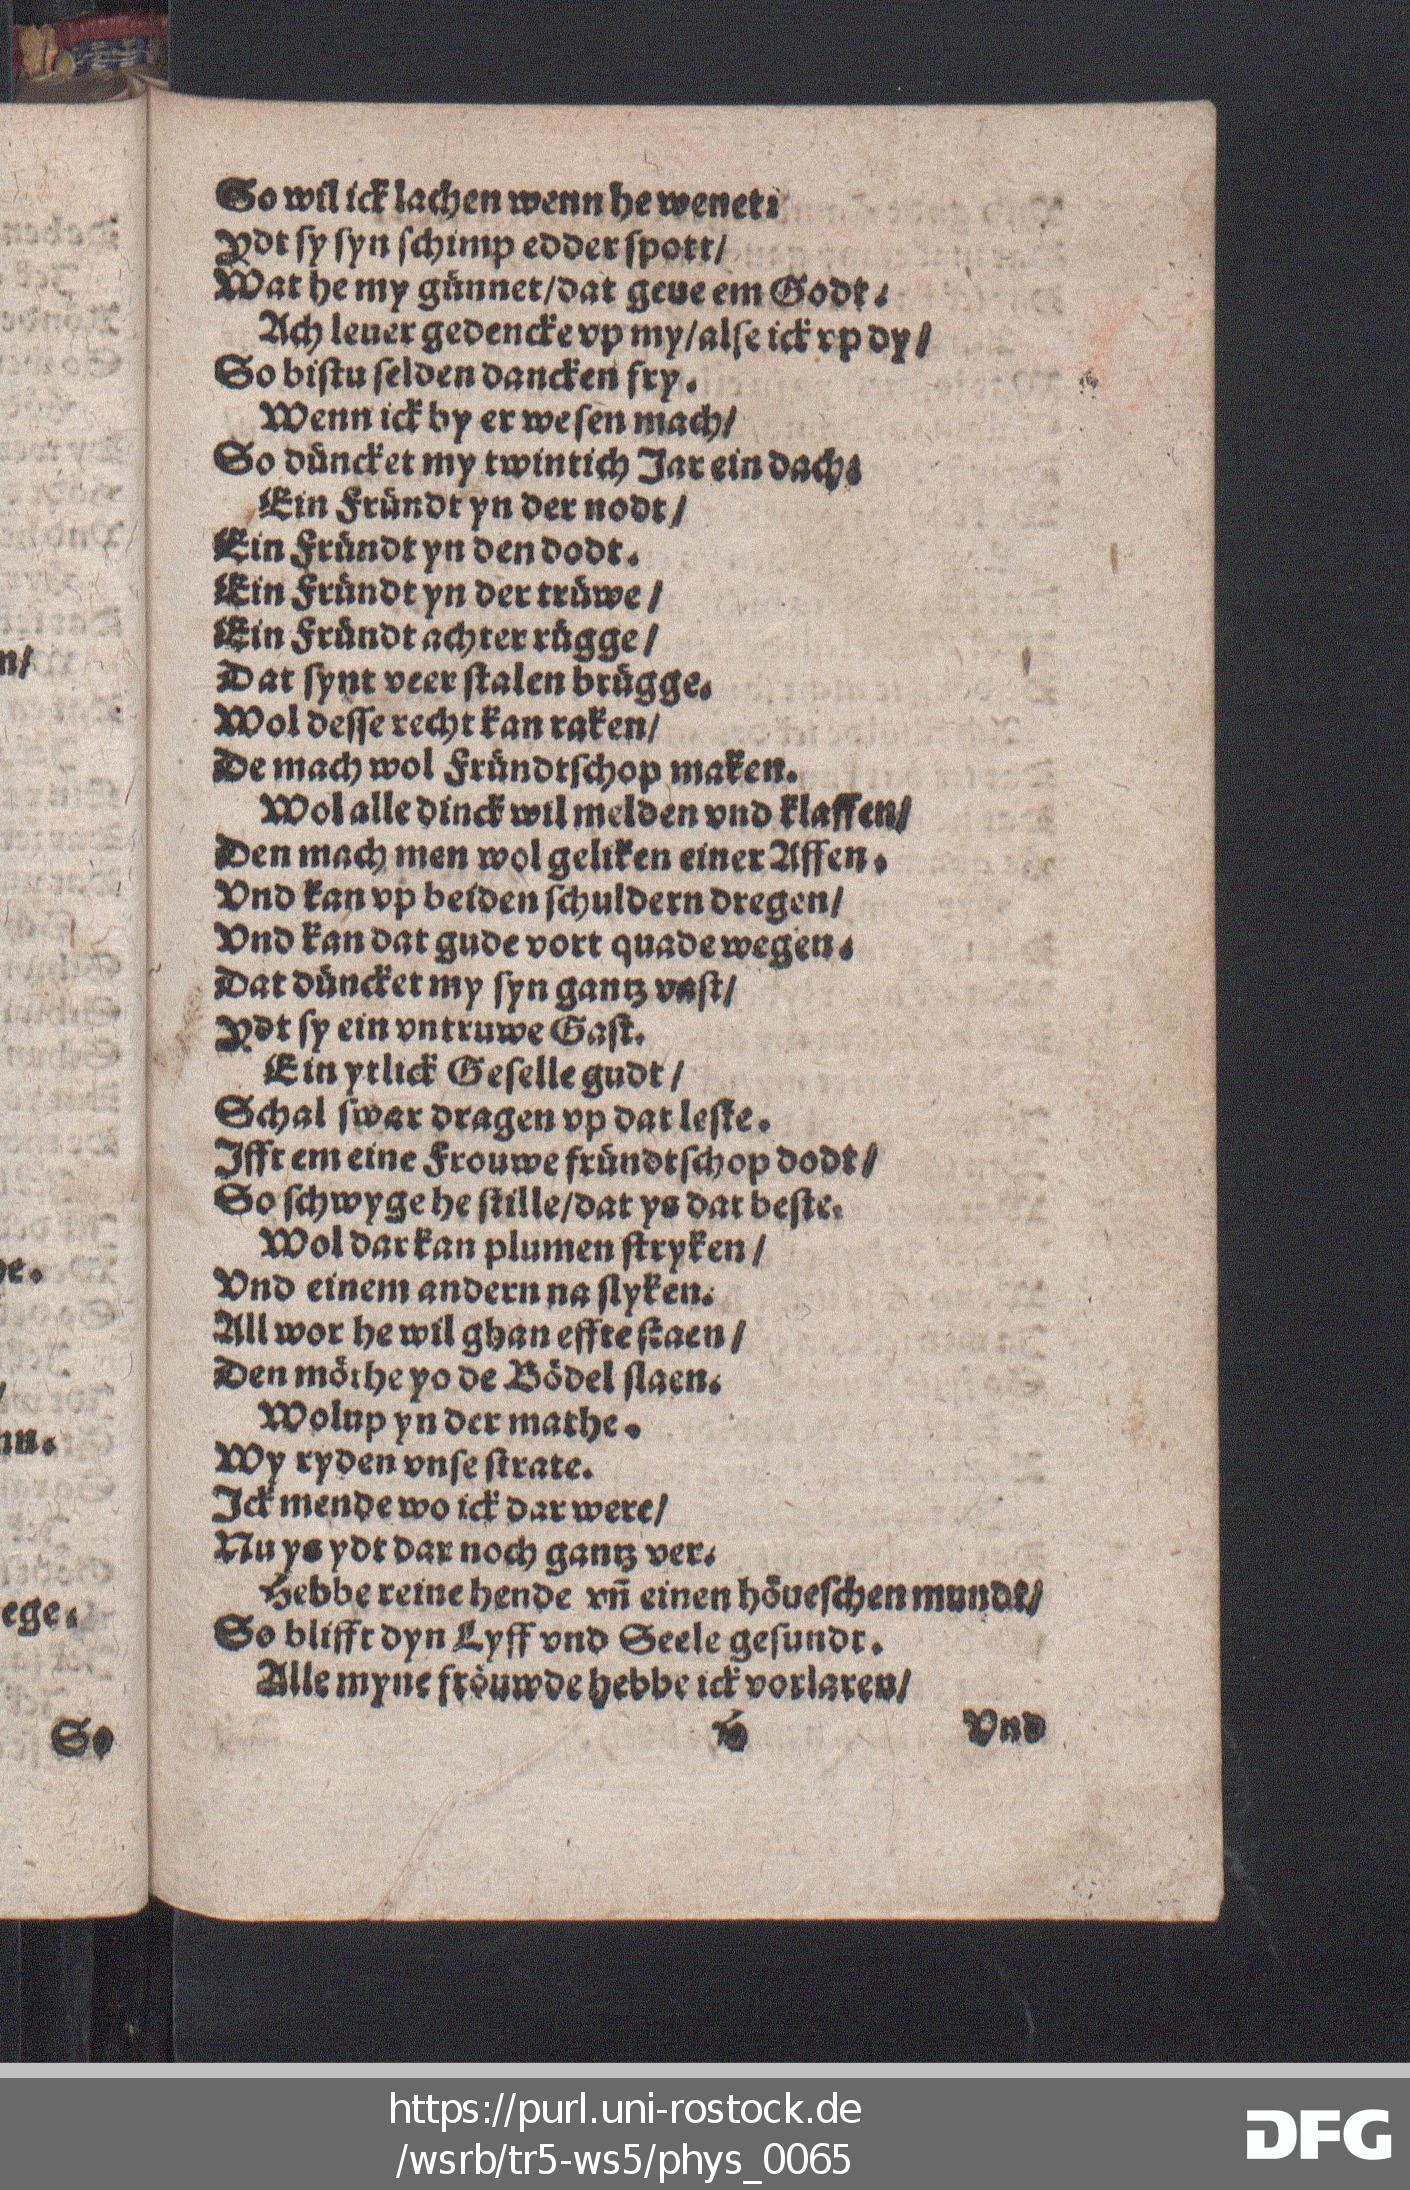 So wil ick lachen wenn he wenet:
Ydt sy syn schimp edder spott/
Wat he my günnet/dat geue em Godt.
Ach leuer gedencke vp my/alse ick vp dy/
So bistu selden dancken fry.
Wenn ick by er wesen mach/
So düncket my twintich Jar ein dach.
Ein Fründt yn der nodt/
Ein Fründt yn den dodt.
Ein Fründt yn der trüwe/
Ein Fründt achter rügge/
Dat synt veer stalen brügge.
Wol desse recht kan raken/
De mach wol Fründtschop maken.
Wol alle dinck wil melden vnd klaffen/
Den mach men wol geliken einer Affen.
Vnd kan vp beiden schuldern dregen/
Vnd kan dat gude vort quade wegen.
Dat düncket my syn gantz vast/
Ydt sy ein vntruwe Gast.
Ein ytlick Geselle gudt/
Schal swar dragen vp dat leste.
Ifft em eine Frouwe fründtschop dodt/
So schwyge he stille/dat ys dat beste.
Wol dar kan plumen stryken/
Vnd einem andern na slyken.
All wor he wil ghan effte staen/
Den möthe yo de Bödel slaen.
Wolup yn der mathe.
Wy ryden vnse strate.
Ick mende wo ick dar were/
Nu ys ydt dar noch gantz ver.
Hebbe reine hende vñ einen höueschen mundt/
So blifft dyn Lyff vnd Seele gesundt.
Alle myne fröuwde hebbe ick vorlaren/
H Vnd
n/
he.
nn.
ege.
So
https://purl.uni-rostock.de
/wsrb/tr5-ws5/phys_0065
DFG